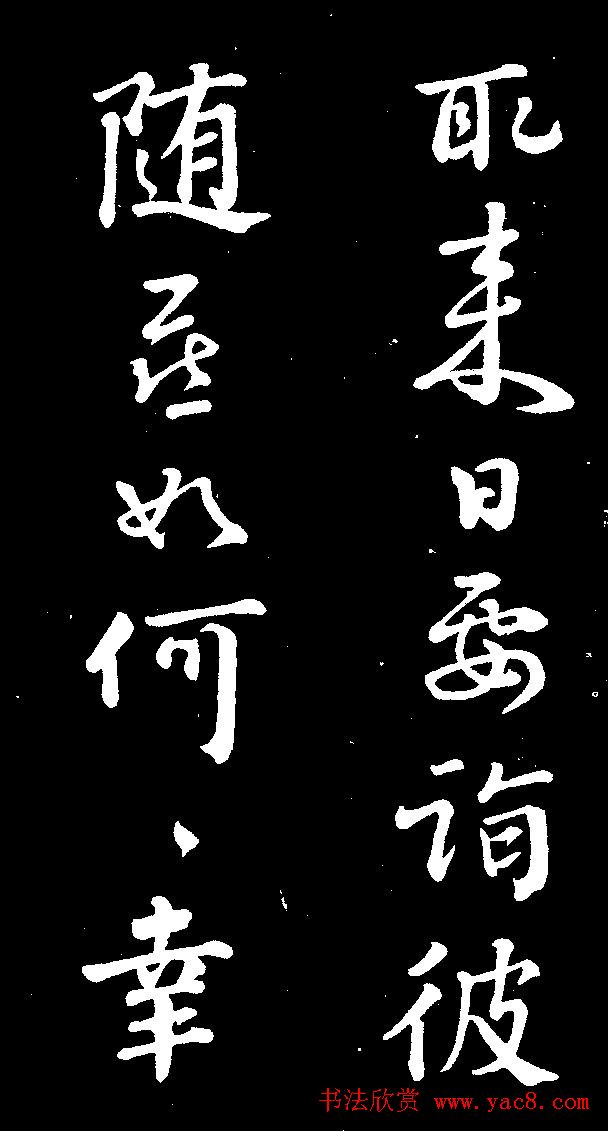 耶来日要询彼
随燕如何、幸
书法欣赏 www.yac8.com